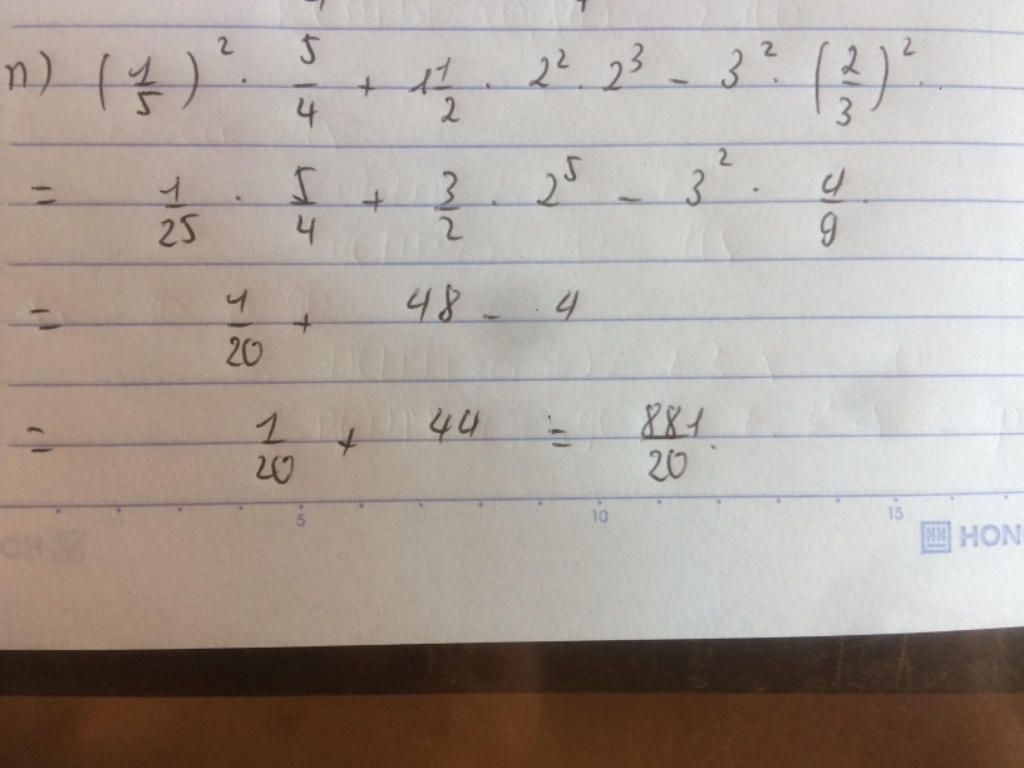 n) (1/5)² · 5/4 + 1 1/2 · 2² · 2³ - 3² · (2/3)² .
= 1/25 · 5/4 + 3/2 · 2⁵ - 3² · 4/9 .
= 1/20 + 48 - 4
= 1/20 + 44 = 881/20 .
5 10 15
HON